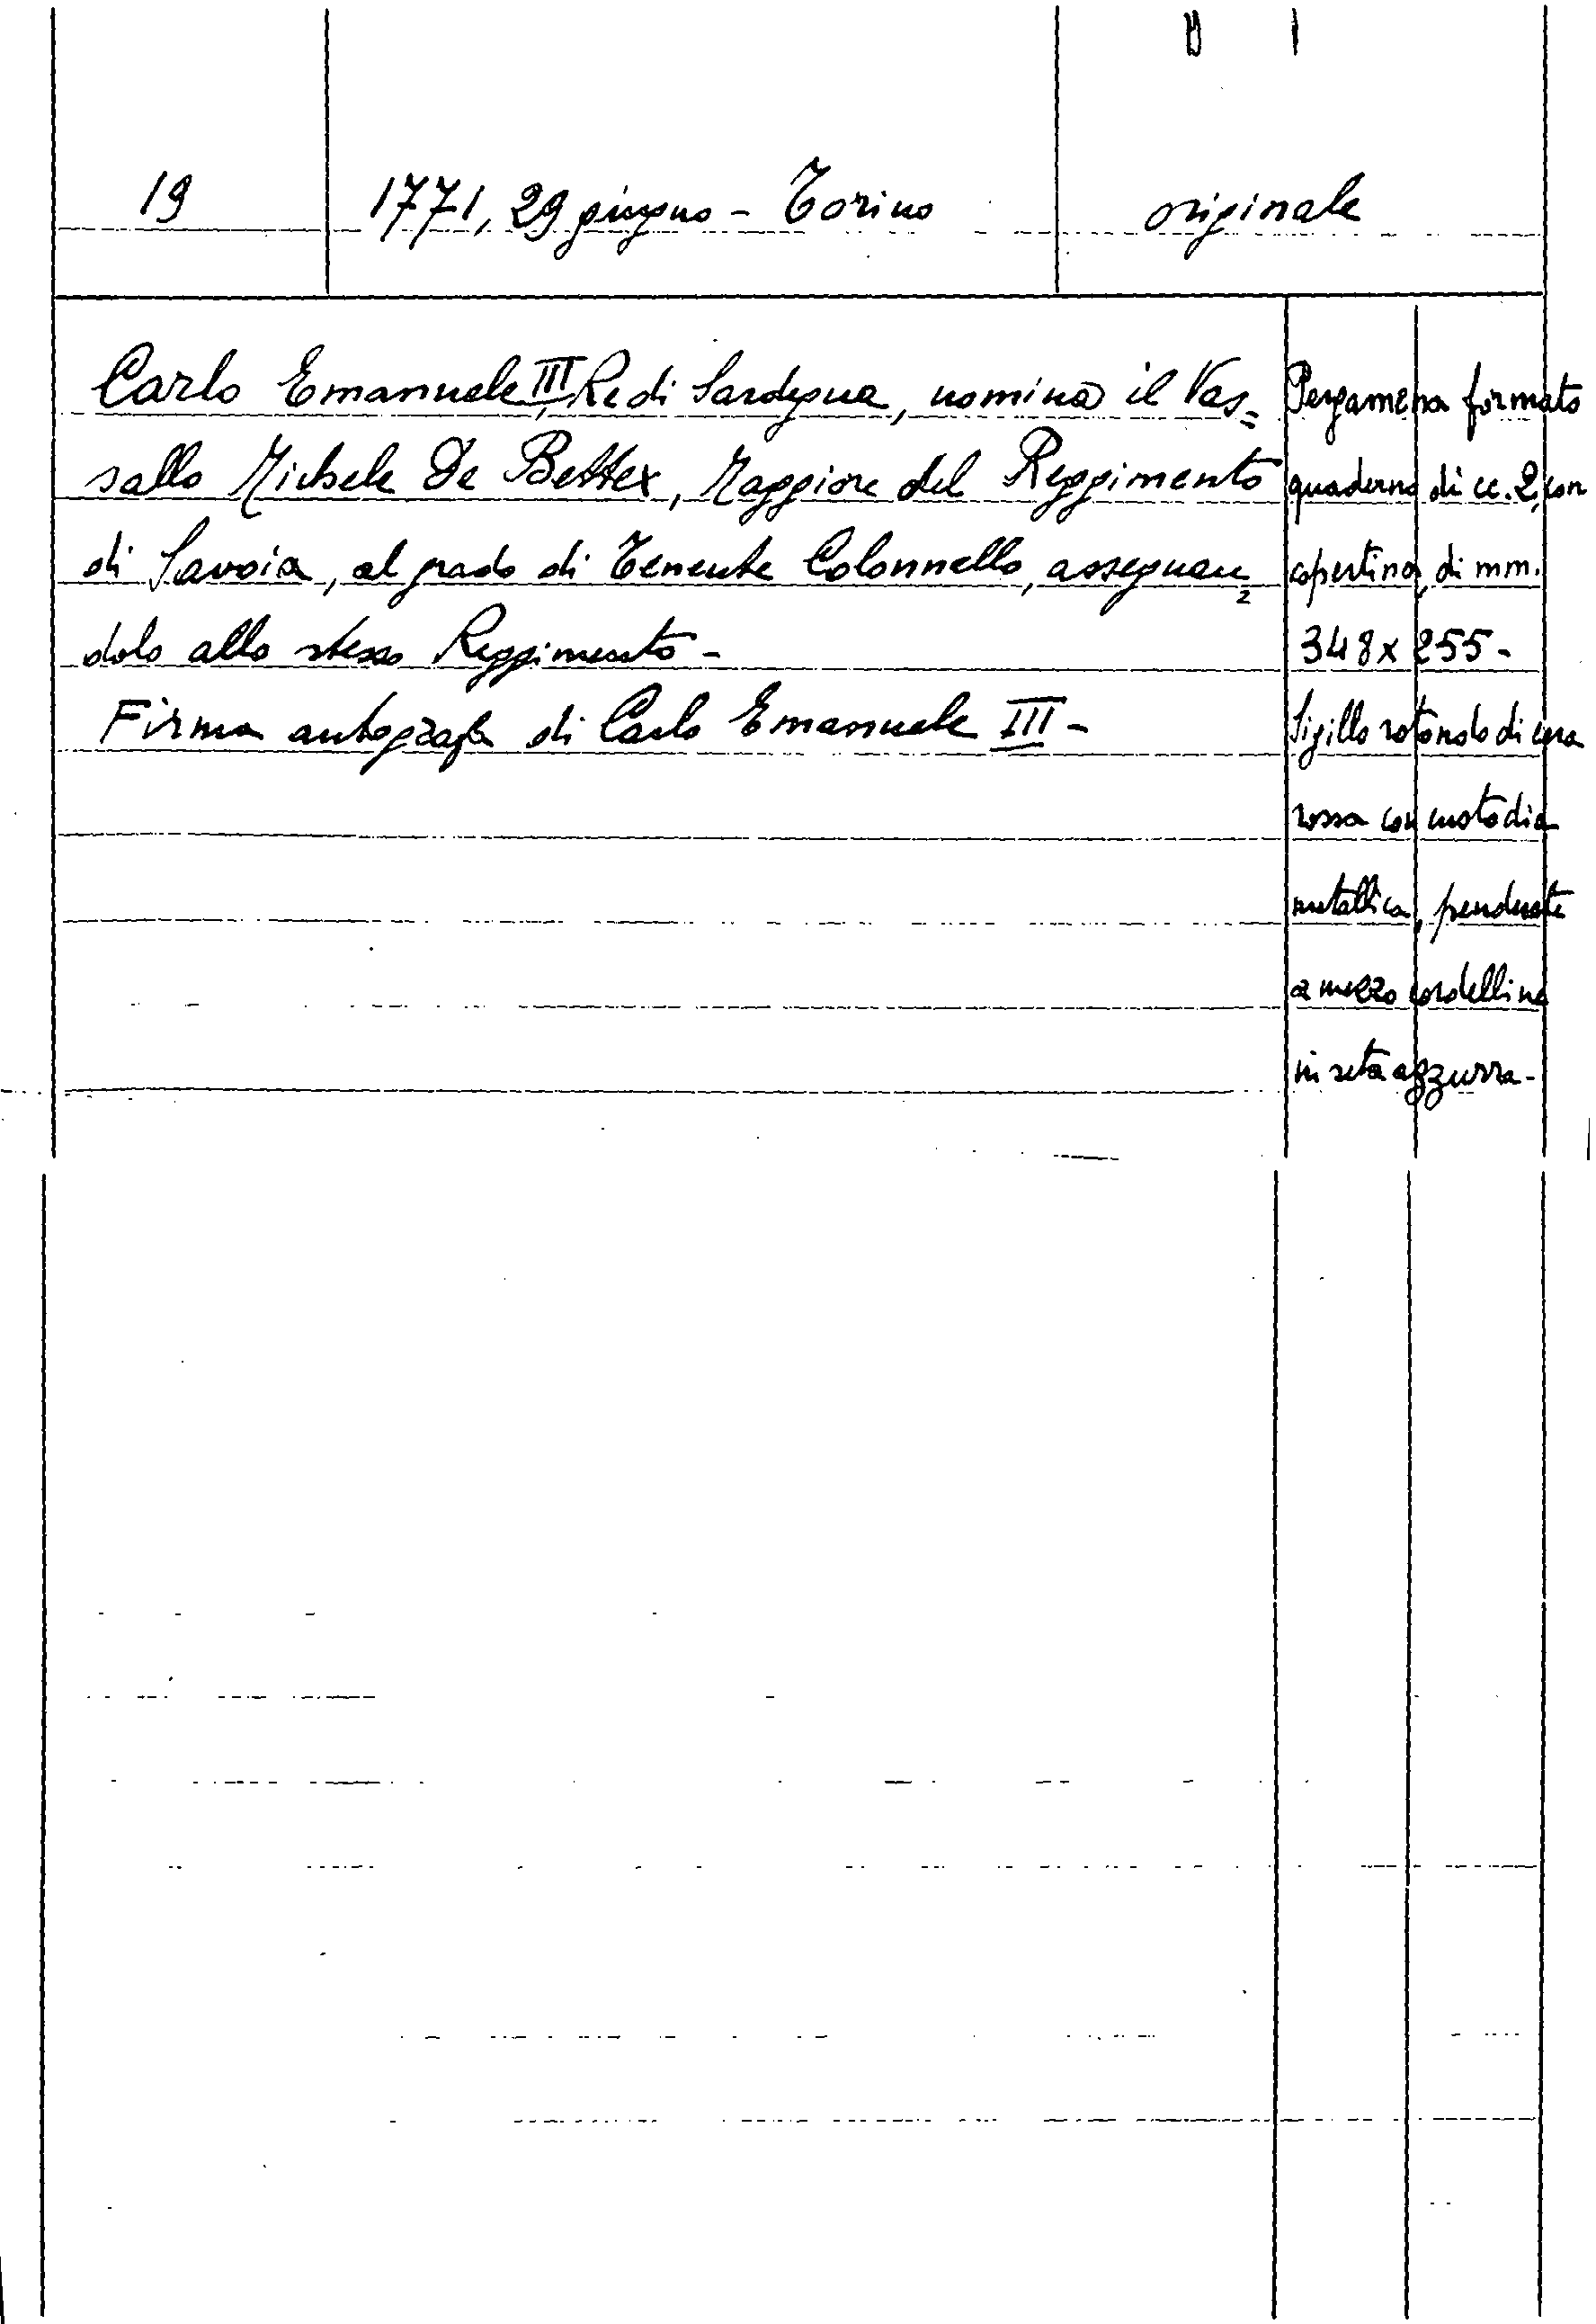 19
1771, 29 giugno - Torino
originale
Carlo Emanuele III, Re di Sardegna, nomina il Vas=
sallo Michele De Bettex, Maggiore del Reggimento
di Savoia, al grado di Tenente Colonnello, assegnan=
dolo allo stesso Reggimento -
Firma autografa di Carlo Emanuele III -
Pergamena formato
quaderno di cc. 2, con
copertina, di mm.
348 x 255 -
Sigillo rotondo di cera
rossa con custodia
metallica, pendente
a mezzo cordellina
in seta azzurra -